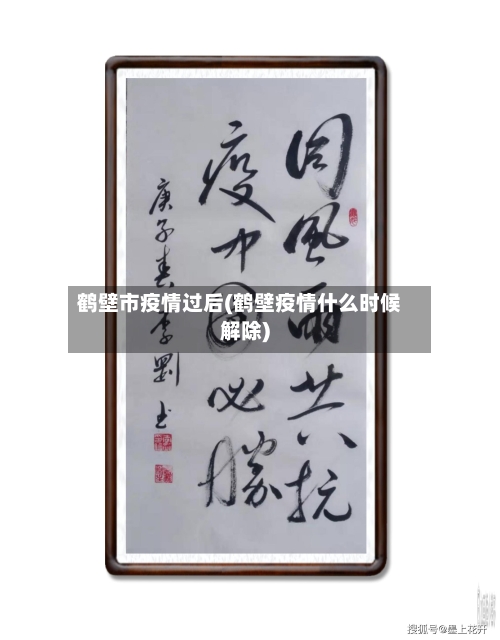 同風雨共抗
疫中国必勝
庚子春李书
鹤壁市疫情过后(鹤壁疫情什么时候
解除)
搜狐号@墨上花轩